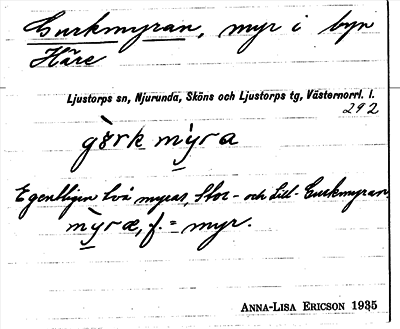 Gurkmyran, myr i byn
Håre
Ljustorps sn, Njurunda, Sköns och Ljustorps tg, Västernorrl. l.
292
Egentligen två myrar, Stor- och Lill-Gurkmyran,
mỳræ, f. = myr.
ANNA-LISA ERICSON 1935